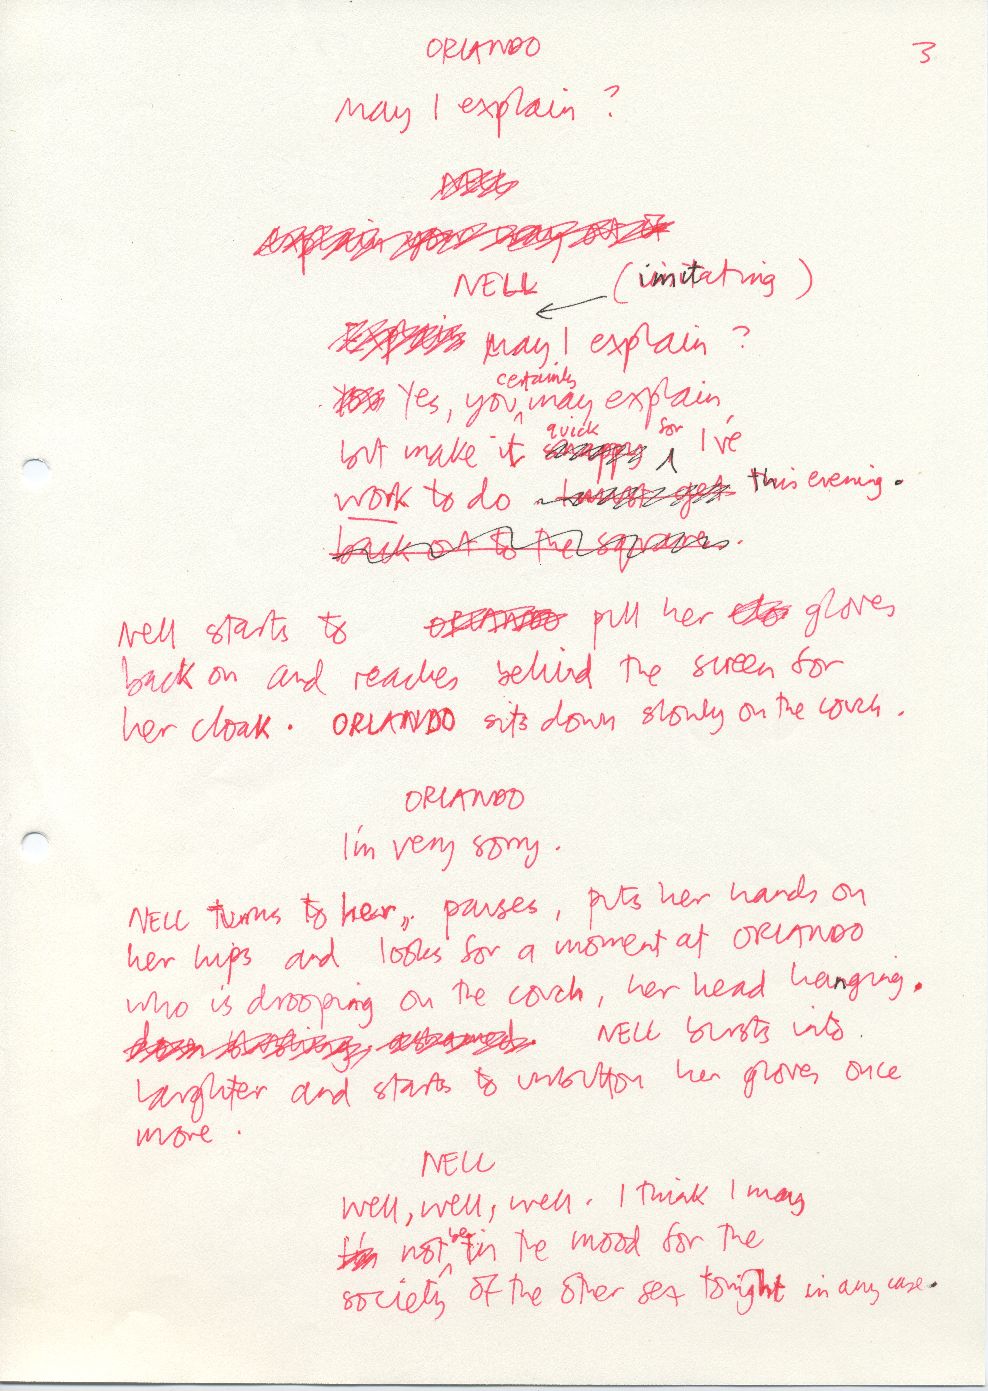 ORLANDO
3
May I explain ?
NELL
explain your way out of it
NELL (imitating)
Explain May I explain ?
Yes, you certainly may explain
but make it quick snappy for I've
work to do I must get this evening.
back out to the square.
Nell starts to ORLANDO pull her gloves
back on and reaches behind the screen for
her cloak. ORLANDO sits down slowly on the couch.
ORLANDO
I'm very sorry.
NELL turns to her, pauses, puts her hands on
her hips and looks for a moment at ORLANDO
who is drooping on the couch, her head hanging.
NELL bursts into
laughter and starts to unbutton her gloves once
more.
NELL
Well, well, well. I think I may
I'm not be in the mood for the
society of the other sex tonight in any case.